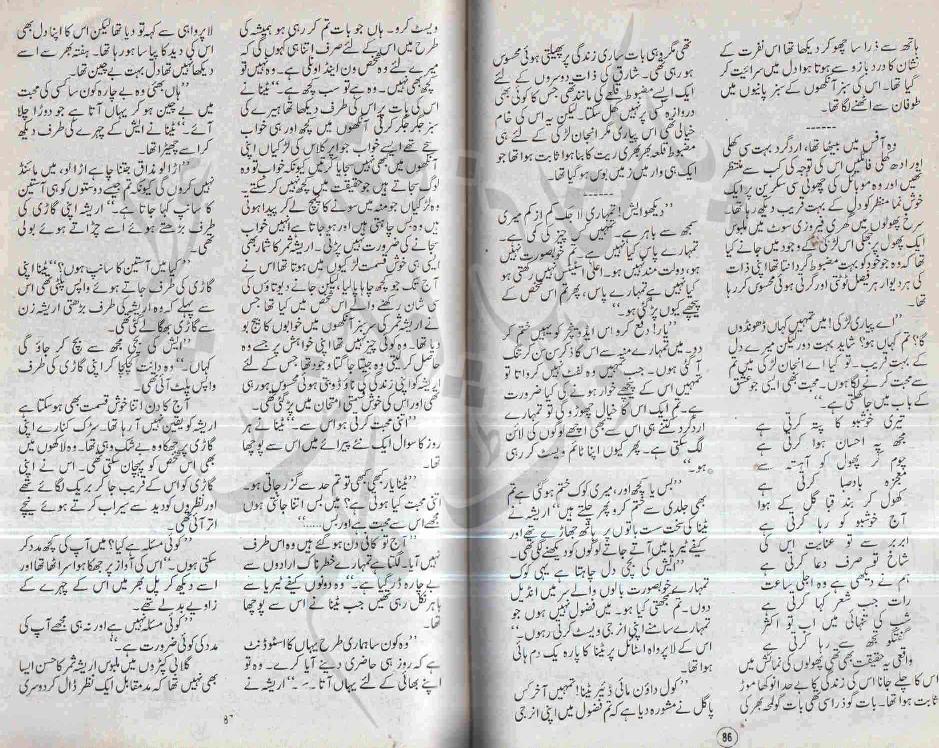 ہاتھ سے ذرا سا چھو کر دیکھا تھا اس نفرت کے
نشان کا درد بازو سے ہوتا ہوا دل میں سرائیت کر
گیا تھا۔ اس کی سبز آنکھوں کے سبز پانیوں میں
طوفان سے اٹھنے لگا تھا۔
------
وہ آفس میں بیٹھا تھا، ارد گرد بہت سی کھلی
اور ادھ کھلی فائلیں اس کی توجہ کی کب سے منتظر
تھیں اور وہ موبائل کی چھوٹی سی سکرین پر ایک
خوش نما منظر کو دل کے بہت قریب دیکھ رہا تھا۔
سرخ پھولوں میں گھری فیروزی سوٹ میں ملبوس
ایک پھول پر جھکی اس لڑکی کے وجود میں جانے کیا
تھا کہ وہ جو خود کو بہت مضبوط گردانتا تھا اپنی ذات
کی ہر دیوار ہر فصیل ٹوٹتی اور گرتی ہوئی محسوس کر رہا
تھا۔
"اے پیاری لڑکی! میں تمہیں کہاں ڈھونڈوں
گا؟ تم کہاں ہو؟ شاید بہت دور لیکن میرے دل
کے بہت قریب۔ تو کیا اے انجان لڑکی میں تم
سے محبت کرنے لگا ہوں۔ محبت بھی ایسی جو عشق
کے باب میں جا نکلتی ہے۔"
تیری خوشبو کا پتہ کرتی ہے
مجھ پہ احسان ہوا کرتی ہے
چوم کر پھول کو آہستہ سے
معجزہ بادِ صبا کرتی ہے
کھول کر بند قبا گل کے ہوا
آج خوشبو کو رہا کرتی ہے
ابر برسے تو عنایت اس کی
شاخ تو صرف دعا کرتی ہے
ہم نے دیکھی ہے وہ اجلی ساعت
رات جب شعر کہا کرتی ہے
شب کی تنہائی میں اب تو اکثر
گفتگو تجھ سے رہا کرتی ہے
واقعی یہ حقیقت بھی تھی پھولوں کی نمائش میں
اس کا چلے جانا اس کی زندگی کا بے حد انوکھا موڑ
ثابت ہوا تھا۔ بات کو ذرا سی تھی بات گو لمحہ بھر کی
تھی مگر وہی بات ساری زندگی پر پھیلتی ہوئی محسوس
ہو رہی تھی۔ شارق کی ذات دوسروں کے لئے
ایک ایسے مضبوط قلعے کی مانند تھی جس کا کوئی بھی
دروازہ کبھی نہیں کھل سکتا۔ لیکن یہ اس کی خام
خیالی تھی اس پیاری مگر انجان لڑکی کے لئے ہی
مضبوط قلعہ بھربھری ریت کا بنا ہوا ثابت ہوا تھا جو
ایک ہی وار میں زمین بوس ہو گیا تھا۔
------
"دیکھو ایش! تمہاری لاجک کم از کم میری
سمجھ سے باہر ہے۔ تمہیں کس چیز کی کمی ہے۔
تمہارے پاس کیا نہیں ہے۔ تم خوبصورت نہیں
ہو، دولت مند نہیں ہو۔ اعلیٰ اسٹیٹس نہیں رکھتی ہو
کیا نہیں ہے تمہارے پاس، پھر تم اس شخص کے
پیچھے کیوں پڑ گئی ہو۔"
"یار! دفع کرو اس ایڈونچر کو یہیں ختم کر
دو۔ میں تمہارے منہ سے اس کا ذکر سن سن کر تنگ
آ گئی ہوں۔ جب تمہیں وہ لفٹ نہیں کرواتا تو
تمہیں اس کے پیچھے خوار ہونے کی کیا ضرورت
ہے۔ تم ایک اس کا خیال چھوڑ دو گی تو تمہارے
ارد گرد کتنے ہی اس سے بھی اچھے لوگوں کی لائن
لگ سکتی ہے۔ پھر کیوں اپنا ٹائم ویسٹ کر رہی
ہو۔"
"بس یا کچھ اور، میری کوک ختم ہو گئی ہے تم
بھی جلدی سے ختم کرو پھر چلتے ہیں" اریشہ نے
ٹینا کی سخت ست باتوں پر ہاتھ جھاڑے تھے اور
کیفے ٹیریا میں آتے جاتے لوگوں کو دیکھنے لگی تھی۔
"ایش کی بچی دل چاہتا ہے یہی کوک
تمہارے خوبصورت بالوں والے سر میں انڈیل
دوں۔ تم سمجھتی کیا ہو۔ میں فضول نہیں ہوں جو
تمہارے سامنے اپنی انرجی ویسٹ کرتی رہوں۔"
اس کے لاپرواہ اسٹائل پر ٹینا کا پارہ یک دم ہائی
ہوا تھا۔
"کول ڈاؤن مائی ڈئیر ٹینا! تمہیں آخر کس
پاگل نے مشورہ دیا ہے کہ تم فضول میں اپنی انرجی
86
ویسٹ کرو۔ ہاں جو بات تم کر رہی ہو ہمیشہ کی
طرح میں اس کے لئے صرف اتنا ہی کہوں گی کہ
میرے لئے وہ شخص ون اینڈ اونلی ہے۔ وہ نہیں تو
کچھ بھی نہیں۔ وہ ہے تو سب کچھ ہے۔" ٹینا نے
اس کی بات پر اس کی طرف دیکھا تھا ہیرے کی
سبز جگر جگر کرتی آنکھوں میں کچھ اور ہی خواب
سجے تھے ایسے خواب جو اپر کلاس کی لڑکیاں اپنی
آنکھوں میں کبھی نہیں سجایا کرتیں کیونکہ خواب تو وہ
لوگ سجاتے ہیں جو حقیقت میں کچھ نہیں کر سکتے۔
وہ لڑکیاں جو منہ میں سونے کا چمچ لے کر پیدا ہوتی
ہیں وہ جس چاہتی ہیں اور ہو جاتا ہے انہیں خواب
سجانے کی ضرورت نہیں پڑتی۔ اریشہ ثمر کا شمار بھی
ایسی ہی خوش قسمت لڑکیوں میں ہوتا تھا اس نے
آج تک جو چاہا پا لیا، لیکن جانے دیوتاؤں کی
سی شان رکھنے والے اس شخص میں کیا تھا جس
نے اریشہ ثمر کی سرسبز آنکھوں میں خوابوں کا بیج بو
دیا تھا۔ وہ کوئی چیز نہیں تھا اپنی خواہش پر جسے وہ
حاصل کر لیتی وہ جیتا جاگتا وجود تھا جس کے لئے
اریشہ کو اپنی زندگی کی ناؤ ڈوبتی ہوئی محسوس ہو رہی
تھی اور اس کی خوش قسمتی امتحان میں پڑ گئی تھی۔
"اتنی محبت کرتی ہو اس سے۔" ٹینا نے ہر
روز کا سوال ایک نئے پیرائے میں اس سے پوچھا
تھا۔
"ٹینا یار کبھی کبھی تو تم حد سے گزر جاتی ہو۔
اتنی محبت کیا ہوتی ہے؟ میں بس اتنا جانتی ہوں
مجھے اس سے محبت ہے اور بس ......"
"آج تو کافی دن ہو گئے ہیں وہ اس طرف
نہیں آیا۔ لگتا ہے تمہارے خطرناک ارادوں سے
بے چارہ ڈر گیا ہے۔" وہ دونوں کیفے ٹیریا سے
باہر نکل رہی تھیں جب ٹینا نے اس سے پوچھا
تھا۔
"وہ کون سا ہماری طرح یہاں کا اسٹوڈنٹ
ہے کہ روز ہی حاضری دینے آیا کرے۔ وہ تو
اپنے بھائی کے لئے یہاں آتا ۔۔۔" اریشہ نے
لاپرواہی سے کہہ تو دیا تھا لیکن اس کا اپنا دل بھی
اس کی دید کا پیاسا ہو رہا تھا۔ ہفتہ بھر سے اسے
دیکھا نہیں تھا دل بہت بے چین تھا۔
"ہاں بھئی وہ بے چارہ کون سا کسی کی محبت
میں بے چین ہو کر یہاں آتا ہے جو دوڑا چلا
آئے۔" ٹینا نے ایش کے چہرے کی طرف دیکھ
کر اسے چھیڑا تھا۔
"اڑا لو مذاق جتنا چاہے اڑا لو، میں مائنڈ
نہیں کروں گی کیونکہ تم جیسے دوستوں کو ہی آستین
کا سانپ کہا جاتا ہے۔" اریشہ اپنی گاڑی کی
طرف بڑھتے ہوئے اسے چڑاتے ہوئے بولی
تھی۔
"کیا میں آستین کا سانپ ہوں؟" ٹینا اپنی
گاڑی کی طرف جاتے ہوئے واپس پلٹی تھی اس
سے پہلے کہ وہ اریشہ کی طرف بڑھتی اریشہ زن
سے گاڑی بھگا لے گئی تھی۔
"ایش کی بچی مجھ سے بچ کر جاؤ گی
کہاں۔" وہ دانت کچکچا کر اپنی گاڑی کی طرف
واپس پلٹ آئی تھی۔
آج کا دن اتنا خوش قسمت بھی ہو سکتا ہے
اریشہ کو یقین نہیں آ رہا تھا۔ سڑک کنارے اپنی
گاڑی پر جھکا وہ بے شک وہی تھا۔ وہ لاکھوں میں
بھی اس شخص کو پہچان سکتی تھی۔ اس نے اپنی
گاڑی کو اس کے قریب جا کر بریک لگائے تھے
اور نظروں کو دید سے سیراب کرتے ہوئے نیچے
اتر آئی تھی۔
"کوئی مسئلہ ہے کیا؟ میں آپ کی کچھ مدد کر
سکتی ہوں۔" اس کی آواز پر جھکا ہوا سر اٹھا تھا اور
اسے دیکھ کر پل بھر میں اس کے چہرے کے
زاویے بدلے تھے۔
"کوئی مسئلہ نہیں ہے اور نہ ہی مجھے آپ کی
مدد کی کوئی ضرورت ہے۔"
گلابی کپڑوں میں ملبوس اریشہ ثمر کا حسن ایسا
بھی نہیں تھا کہ مد مقابل ایک نظر ڈال کر دوسری